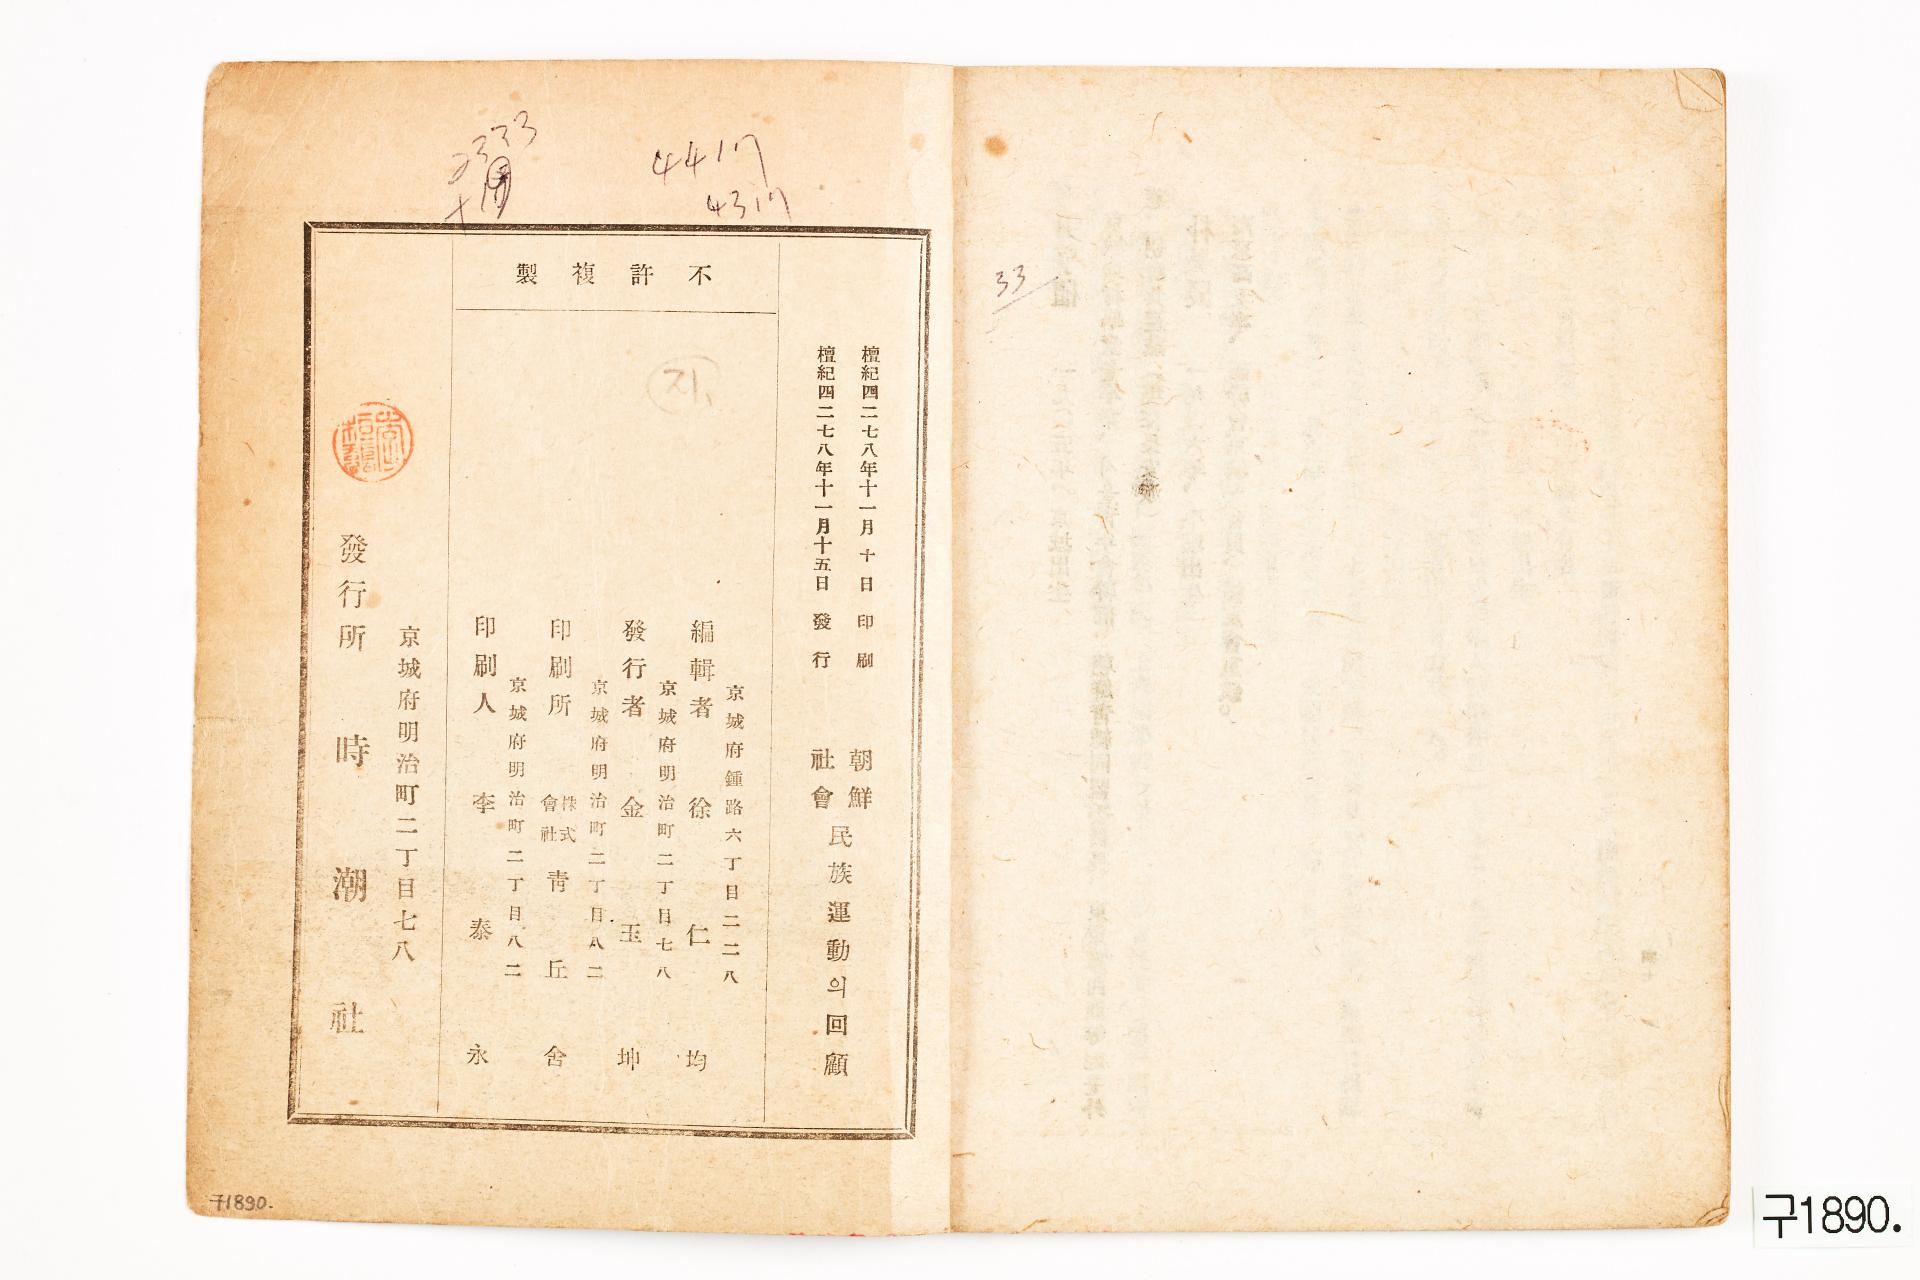 2333
4417
4317
33
不許複製
檀紀四二七八年十一月十日 印刷
檀紀四二七八年十一月十五日 發行
朝鮮社會 民族運動의回顧
지
京城府鍾路六丁目二二八
編輯者 徐仁均
京城府明治町二丁目七八
發行者 金玉坤
京城府明治町二丁目八二
印刷所 株式會社 靑丘舍
京城府明治町二丁目八二
印刷人 李泰永
京城府明治町二丁目七八
發行所 時潮社
구1890.
구1890.